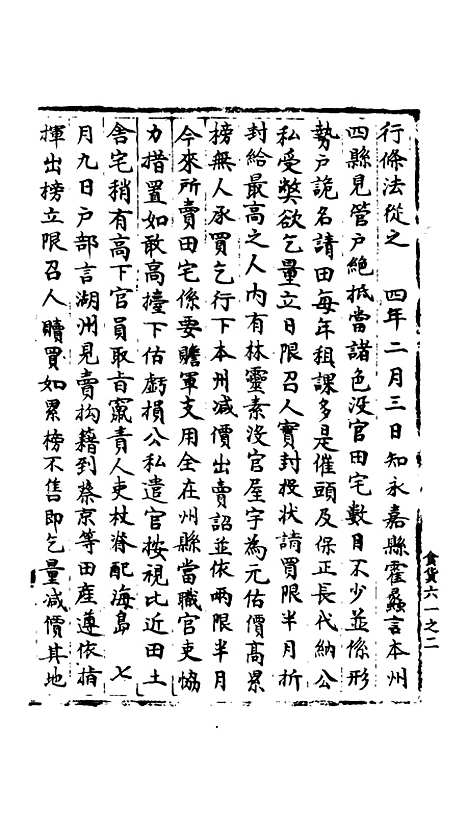 行條法從之　四年二月三日知永嘉縣霍蠡言本州
四縣見管戶絕抵當諸色沒官田宅數目不少並係形
勢戶詭名請田每年租課多是催頭及保正長代納公
私受獘欲乞量立日限召人實封投狀請買限半月折
封給最高之人內有林靈素沒官屋宇為元估價高累
榜無人承買乞行下本州減價出賣詔並依兩限半月
今來所賣田宅係要贍軍支用全在州縣當職官吏恊
力措置如敢高擡下估虧損公私遣官按視比近田土
舎宅稍有高下官員取㫖竄責人吏杖脊配海島　七
月九日戶部言湖州見賣拘籍到蔡京等田産遵依指
揮出榜立限召人贖買如累榜不售即乞量減價其地
食貨六一之二